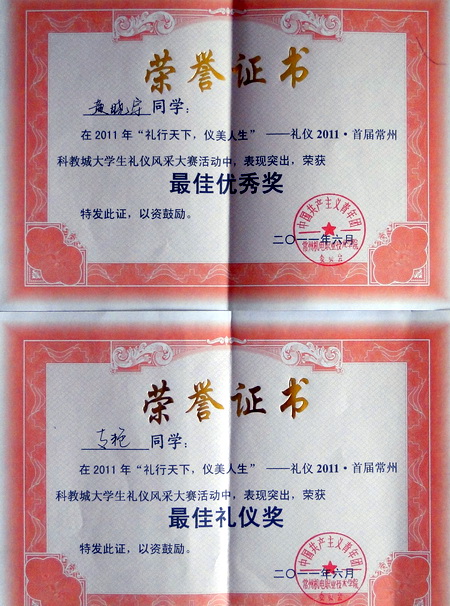 荣誉证书
同学：
在2011年“礼行天下，仪美人生”——礼仪2011·首届常州
科教城大学生礼仪风采大赛活动中，表现突出，荣获
最佳优秀奖
特发此证，以资鼓励。
中国共产主义青年团
常州机电职业技术学院
委员会
二〇一一年六月
荣誉证书
同学：
在2011年“礼行天下，仪美人生”——礼仪2011·首届常州
科教城大学生礼仪风采大赛活动中，表现突出，荣获
最佳礼仪奖
特发此证，以资鼓励。
中国共产主义青年团
常州机电职业技术学院
二〇一一年六月